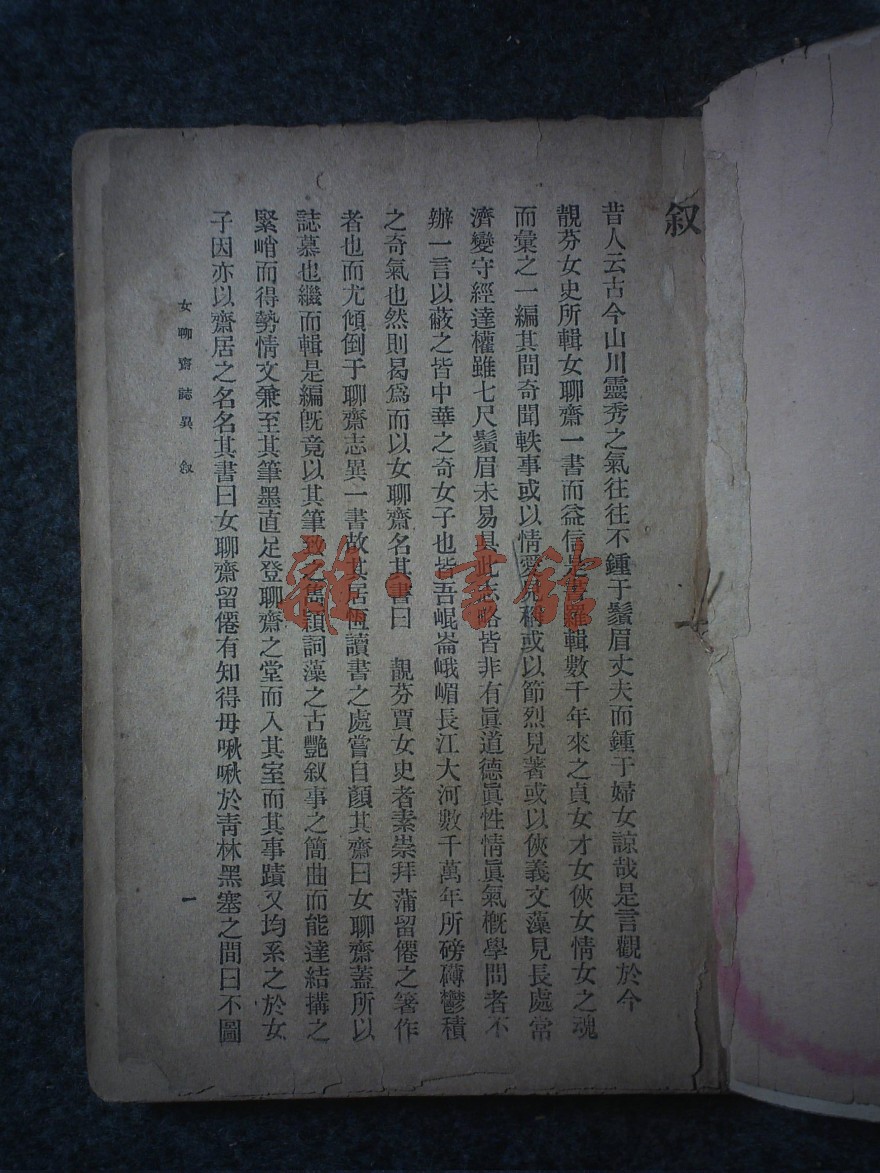 叙
昔人云古今山川靈秀之氣往往不鍾于鬚眉丈夫而鍾于婦女諒哉是言觀於今
靚芬女史所輯女聊齋一書而益信是書羅輯數千年來之貞女才女俠女情女之魂
而彙之一編其間奇聞軼事或以情愛見稱或以節烈見著或以俠義文藻見長處常
濟變守經達權雖七尺鬚眉未易具此志略皆非有眞道德眞性情眞氣概學問者不
辦一言以蔽之皆中華之奇女子也皆吾崐崙峨嵋長江大河數千萬年所磅礡鬱積
之奇氣也然則曷爲而以女聊齋名其書曰 靚芬賈女史者素崇拜蒲留僊之箸作
者也而尤傾倒于聊齋志異一書故其居恆讀書之處嘗自顏其齋曰女聊齋蓋所以
誌慕也繼而輯是編旣竟以其筆致之雋穎詞藻之古艷叙事之簡曲而能達結搆之
緊峭而得勢情文兼至其筆墨直足登聊齋之堂而入其室而其事蹟又均系之於女
子因亦以齋居之名名其書曰女聊齋留僊有知得毋啾啾於靑林黑塞之間曰不圖
女聊齋誌異 叙 一
雜·書館